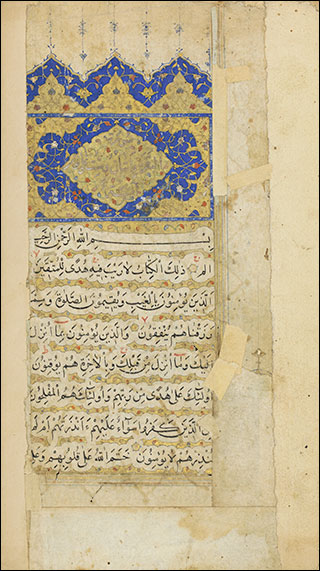 بِسْمِ اللَّهِ الرَّحْمَنِ الرَّحِيمِ
الم ذَلِكَ الْكِتَابُ لَا رَيْبَ فِيهِ هُدًى لِلْمُتَّقِينَ
الَّذِينَ يُؤْمِنُونَ بِالْغَيْبِ وَيُقِيمُونَ الصَّلٰوةَ وَمِمَّا
رَزَقْنَاهُمْ يُنْفِقُونَ وَالَّذِينَ يُؤْمِنُونَ بِمَا أُنْزِلَ
إِلَيْكَ وَمَا أُنْزِلَ مِنْ قَبْلِكَ وَبِالْآخِرَةِ هُمْ يُوقِنُونَ
أُولَئِكَ عَلَى هُدًى مِنْ رَبِّهِمْ وَأُولَئِكَ هُمُ الْمُفْلِحُونَ
إِنَّ الَّذِينَ كَفَرُوا سَوَاءٌ عَلَيْهِمْ ءَأَنْذَرْتَهُمْ أَمْ لَمْ
تُنْذِرْهُمْ لَا يُؤْمِنُونَ خَتَمَ اللَّهُ عَلَى قُلُوبِهِمْ وَعَلَى